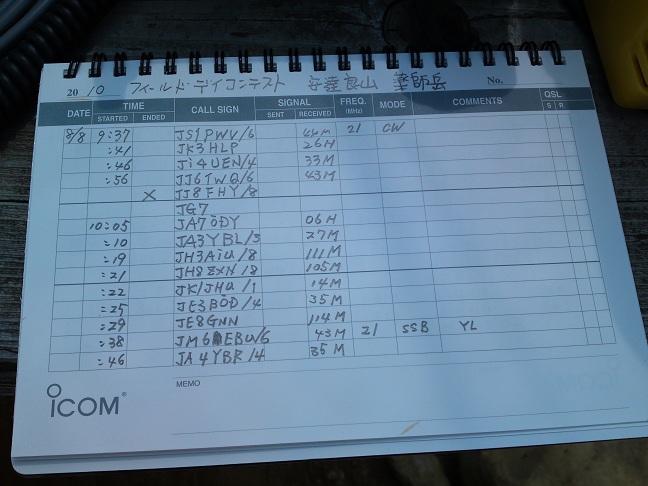 20 10 フィールドデイコンテスト 安達良山 薬師岳 No.
DATE TIME CALL SIGN SIGNAL FREQ. (MHz) MODE COMMENTS QSL
STARTED ENDED SENT RECEIVED S R
8/8 9:37 JS1PWV/6 44M 21 CW
:41 JK3HLP 26M
:46 Ji4UEN/4 33M
:56 JJ6TWQ/6 43M
× JJ8FHY/8
JG7
10:05 JA7ODY 06H
:10 JA3YBL/3 27M
:19 JH3AiU/8 111M
:21 JH8ZXN/8 105M
:22 JK1JHU/1 14M
:25 JE3BOD/4 35M
:29 JE8GNN 114M
:38 JM6EBU/6 43M 21 SSB YL
:46 JA4YBR/4 35M
MEMO
iCOM®